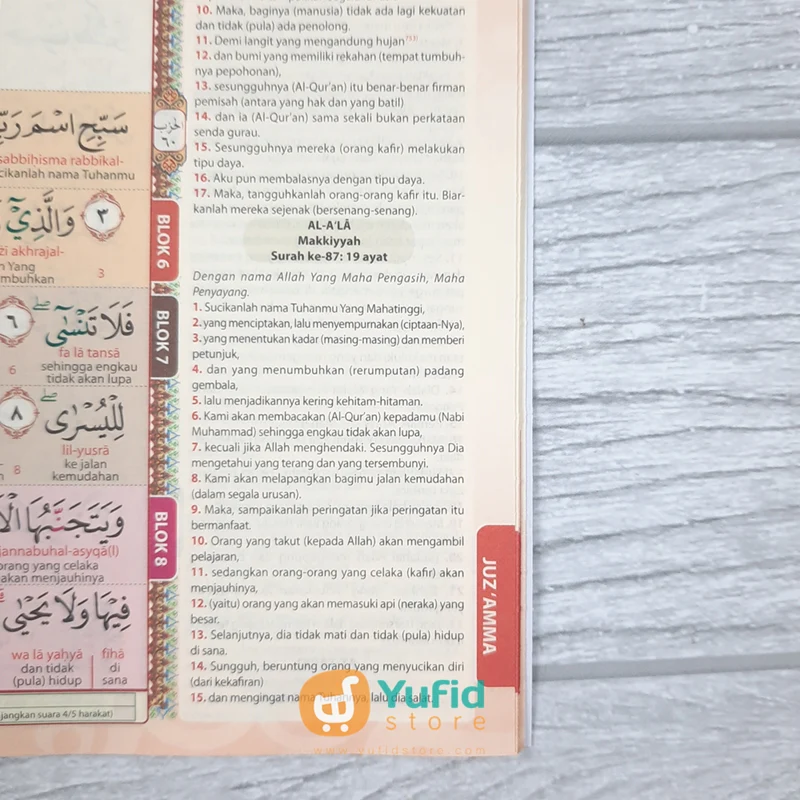 10. Maka, baginya (manusia) tidak ada lagi kekuatan
dan tidak (pula) ada penolong.
11. Demi langit yang mengandung hujan⁷⁵³⁾
12. dan bumi yang memiliki rekahan (tempat tumbuh-
nya pepohonan),
13. sesungguhnya (Al-Qur'an) itu benar-benar firman
pemisah (antara yang hak dan yang batil)
14. dan ia (Al-Qur'an) sama sekali bukan perkataan
senda gurau.
15. Sesungguhnya mereka (orang kafir) melakukan
tipu daya.
16. Aku pun membalasnya dengan tipu daya.
17. Maka, tangguhkanlah orang-orang kafir itu. Biar-
kanlah mereka sejenak (bersenang-senang).
AL-A'LĀ
Makkiyyah
Surah ke-87: 19 ayat
Dengan nama Allah Yang Maha Pengasih, Maha
Penyayang.
1. Sucikanlah nama Tuhanmu Yang Mahatinggi,
2. yang menciptakan, lalu menyempurnakan (ciptaan-Nya),
3. yang menentukan kadar (masing-masing) dan memberi
petunjuk,
4. dan yang menumbuhkan (rerumputan) padang
gembala,
5. lalu menjadikannya kering kehitam-hitaman.
6. Kami akan membacakan (Al-Qur'an) kepadamu (Nabi
Muhammad) sehingga engkau tidak akan lupa,
7. kecuali jika Allah menghendaki. Sesungguhnya Dia
mengetahui yang terang dan yang tersembunyi.
8. Kami akan melapangkan bagimu jalan kemudahan
(dalam segala urusan).
9. Maka, sampaikanlah peringatan jika peringatan itu
bermanfaat.
10. Orang yang takut (kepada Allah) akan mengambil
pelajaran,
11. sedangkan orang-orang yang celaka (kafir) akan
menjauhinya,
12. (yaitu) orang yang akan memasuki api (neraka) yang
besar.
13. Selanjutnya, dia tidak mati dan tidak (pula) hidup
di sana.
14. Sungguh, beruntung orang yang menyucikan diri
(dari kekafiran)
15. dan mengingat nama Tuhannya, lalu dia salat.
سَبِّحِ اسْمَ
sabbihisma rabbikal-
cikanlah nama Tuhanmu
٣ وَالَّذِيْٓ
żī akhrajal-
Yang
mbuhkan
3
٦ فَلَا تَنْسٰىٓ
fa lā tansā
6
sehingga engkau
tidak akan lupa
٨ لِلْيُسْرٰى
lil-yusrā
8
ke jalan
kemudahan
وَيَتَجَنَّبُهَا
jannabuhal-asyqā(l)
orang yang celaka
akan menjauhinya
فِيْهَا وَلَا يَحْيٰى
wa lā yahyā fīhā
dan tidak di
(pula) hidup sana
jangkan suara 4/5 harakat)
الحزب
٦٠
BLOK 6
BLOK 7
BLOK 8
JUZ 'AMMA
Yufid
store
www.yufidstore.com